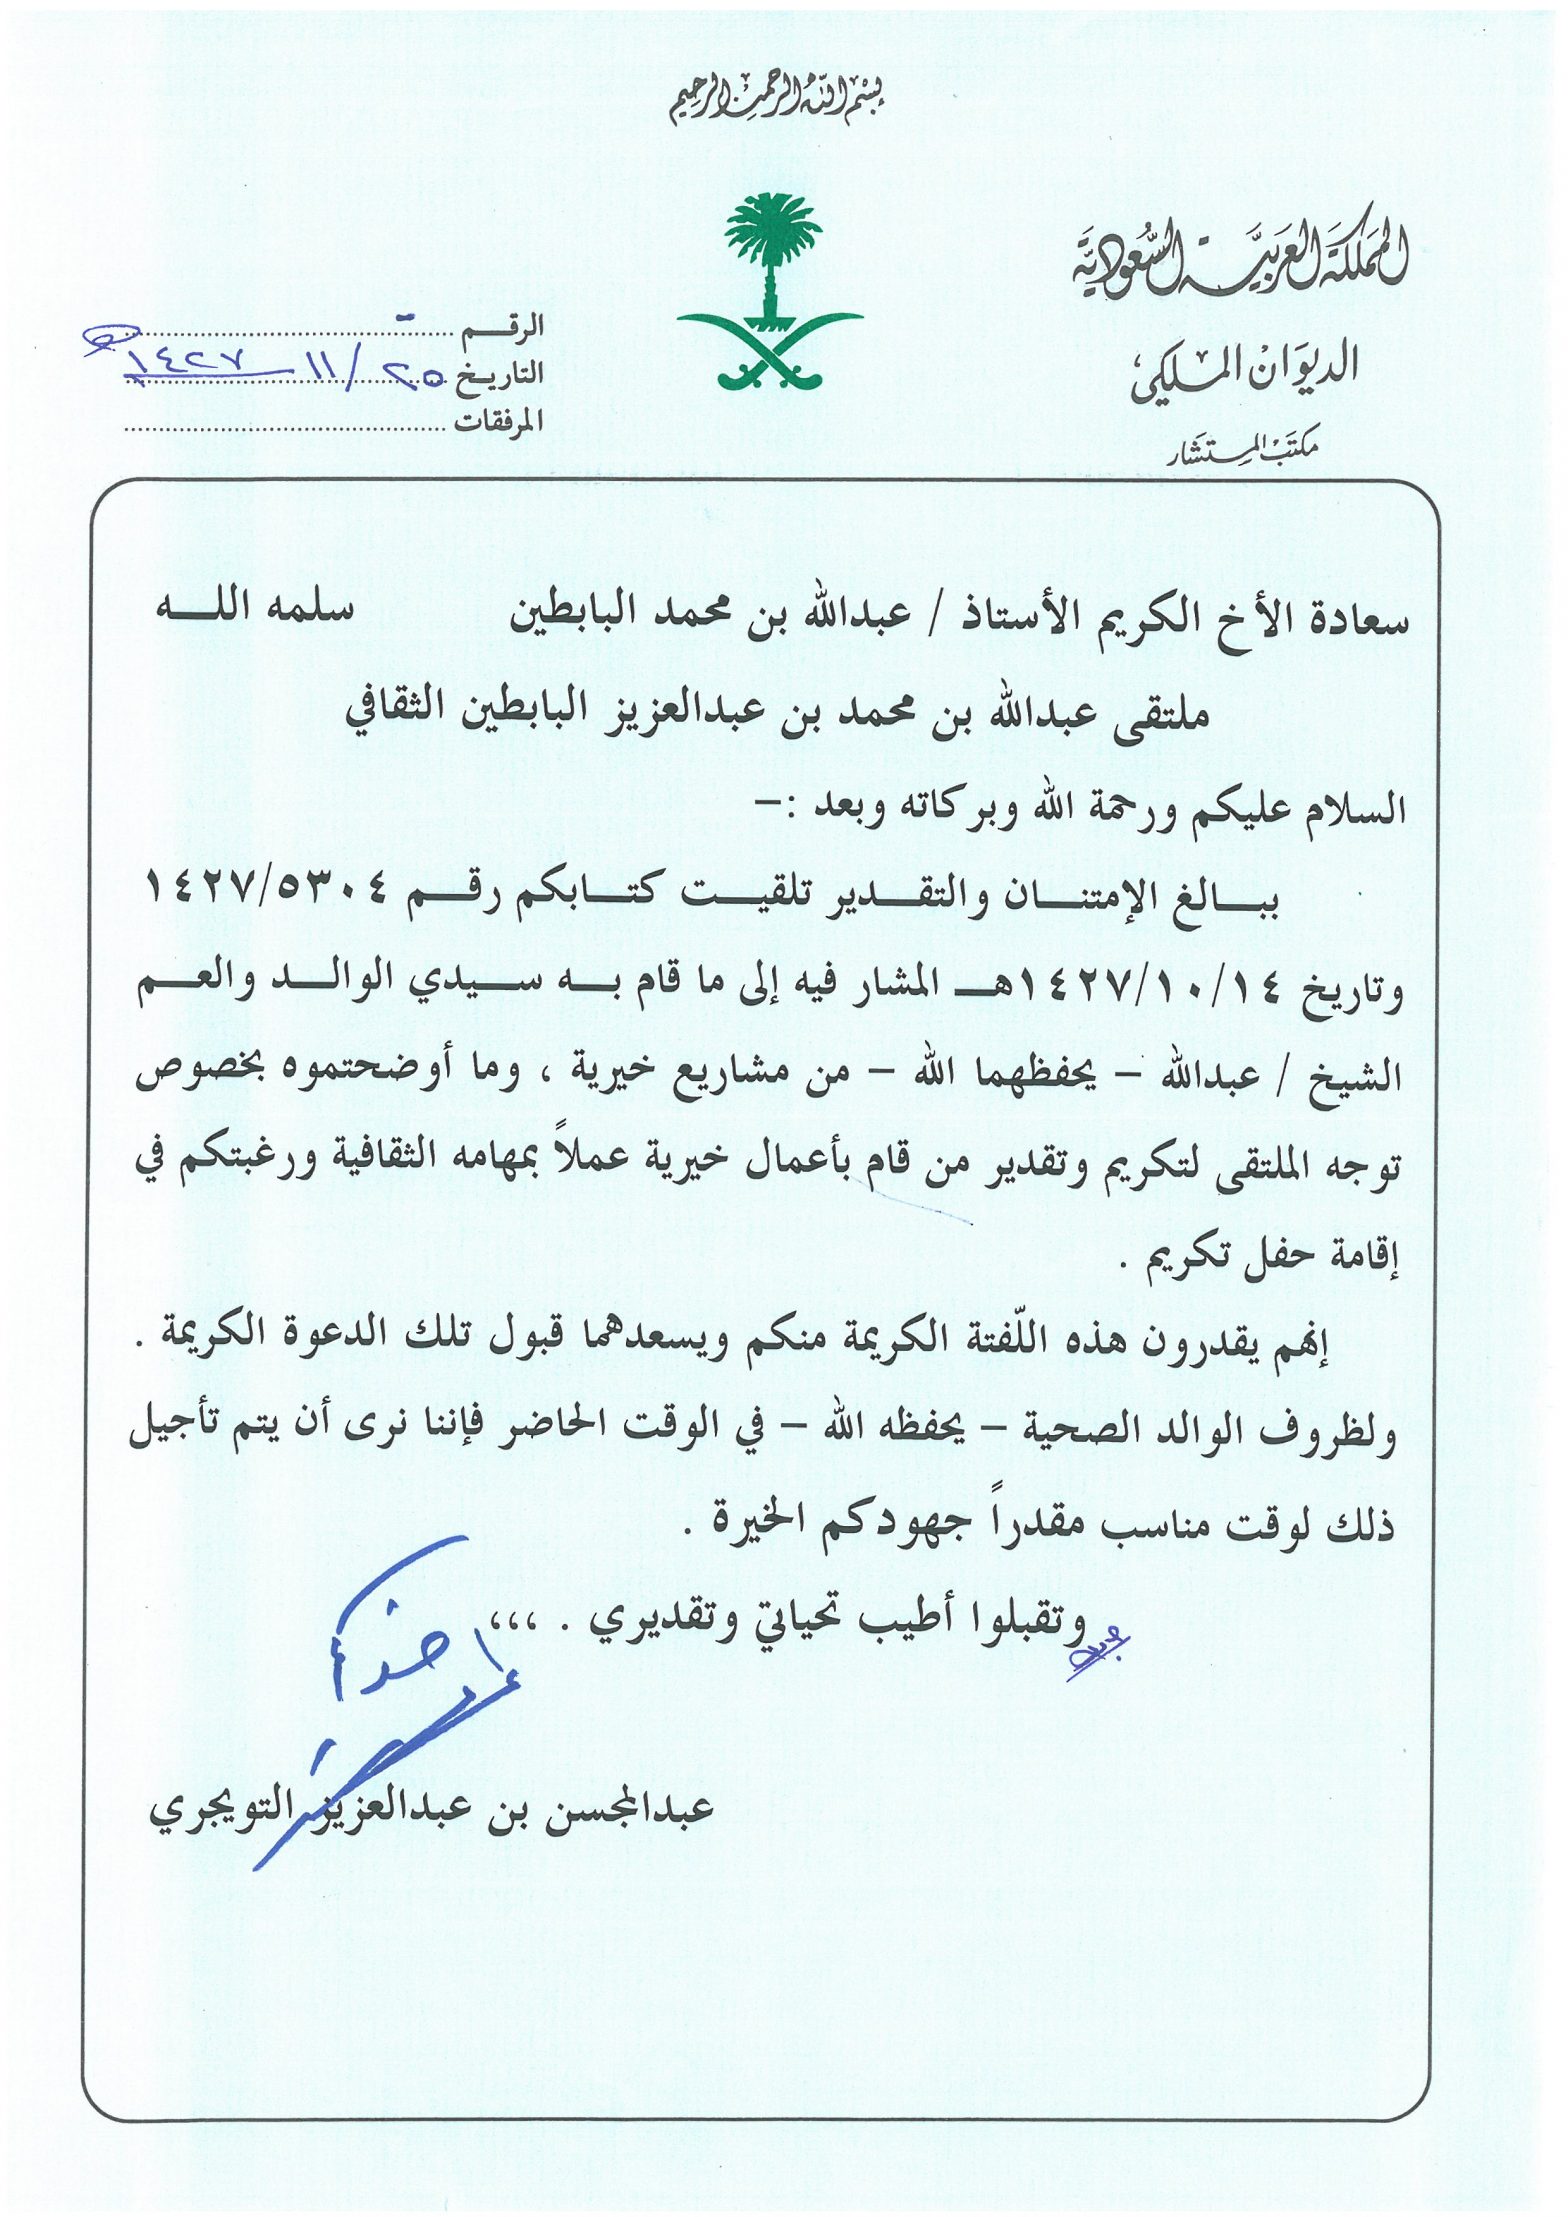 بسم الله الرحمن الرحيم
المملكة العربية السعودية
الديوان الملكي
مكتب المستشار
الرقم -
التاريخ ٢٥/١١/١٤٢٧هـ
المرفقات
سعادة الأخ الكريم الأستاذ / عبدالله بن محمد البابطين سلمه اللـــه
ملتقى عبدالله بن محمد بن عبدالعزيز البابطين الثقافي
السلام عليكم ورحمة الله وبركاته وبعد :–
ببـــالغ الإمتنـــان والتقـــدير تلقيـــت كتـــابكم رقـــم ١٤٢٧/٥٣٠٤
وتاريخ ١٤٢٧/١٠/١٤هـ المشار فيه إلى ما قام بـه سـيدي الوالـد والعـم
الشيخ / عبدالله – يحفظهما الله – من مشاريع خيرية ، وما أوضحتموه بخصوص
توجه الملتقى لتكريم وتقدير من قام بأعمال خيرية عملاً بمهامه الثقافية ورغبتكم في
إقامة حفل تكريم .
إنهم يقدرون هذه اللّفتة الكريمة منكم ويسعدهما قبول تلك الدعوة الكريمة .
ولظروف الوالد الصحية – يحفظه الله – في الوقت الحاضر فإننا نرى أن يتم تأجيل
ذلك لوقت مناسب مقدراً جهودكم الخيرة .
وتقبلوا أطيب تحياتي وتقديري . ،،،
عبدالمحسن بن عبدالعزيز التويجري